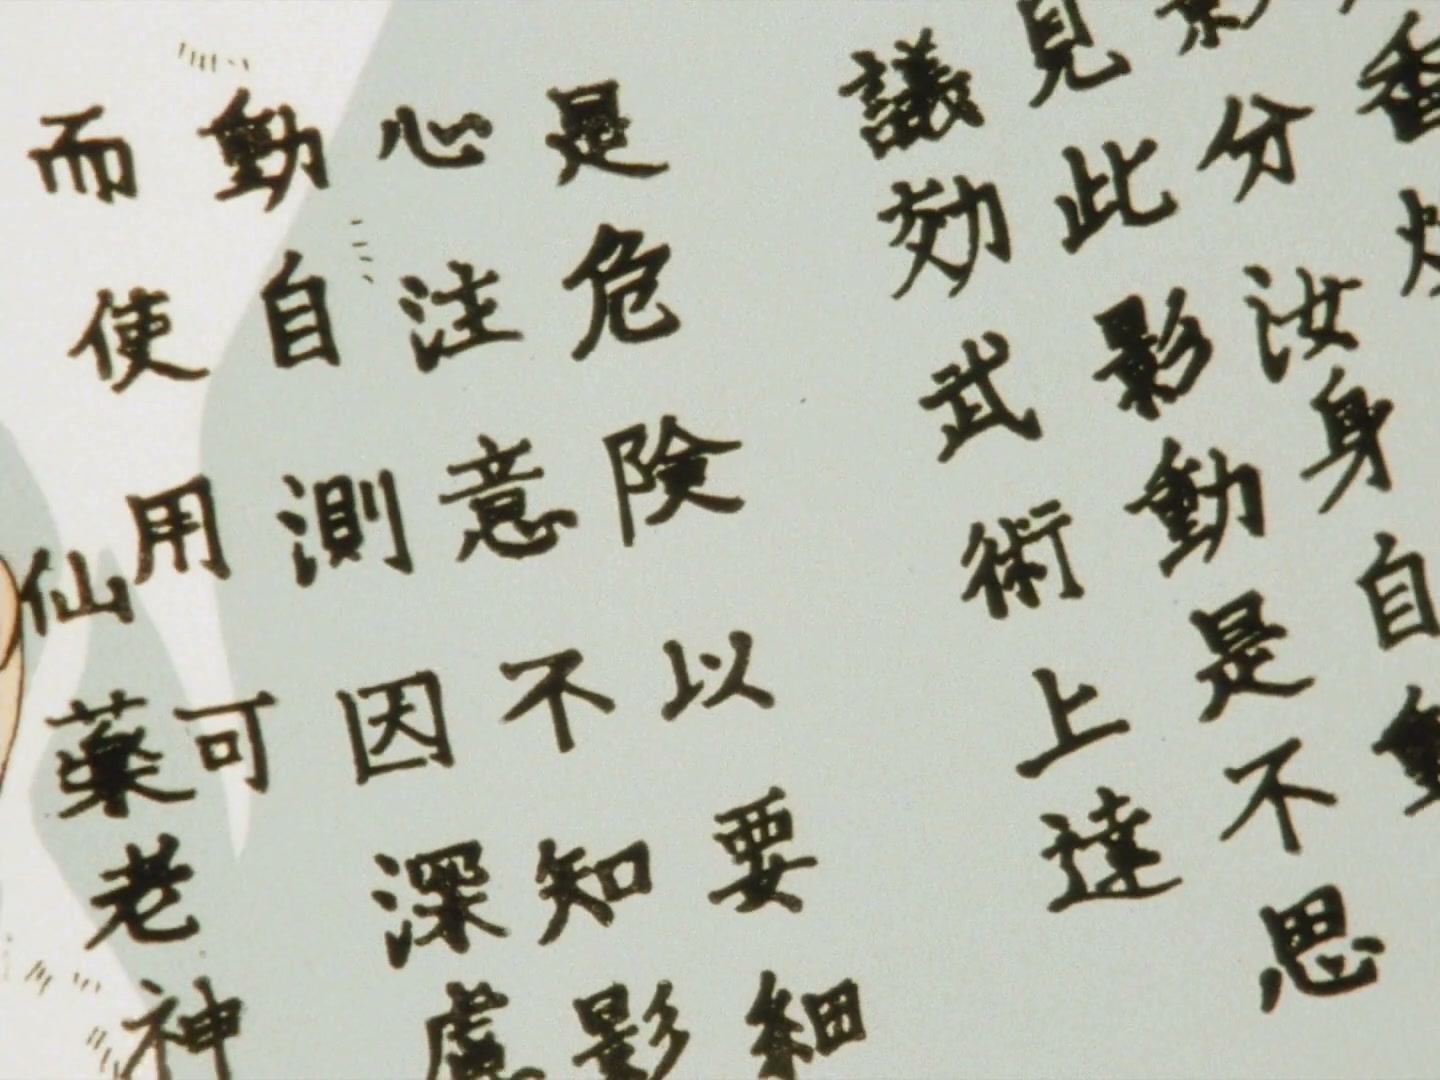 香
影分汝身自動
見此影動是不思
議効武術上達
是危険以要細
心注意不知影
動自測因深慮
而使用可
仙薬老神